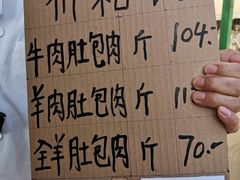 牛肉肚包肉 斤 104.-
羊肉肚包肉 斤 11
全羊肚包肉 斤 70.-